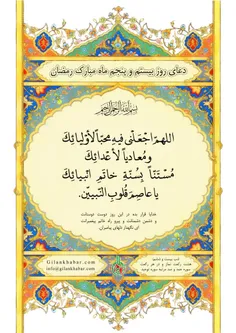 دعای روز بیست و پنجم ماه مبارک رمضان
بسم الله الرحمن الرحیم
اللهمّ اجْعَلْنی فیهِ محبّاً لأوْلیائِكَ
ومُعادیاً لأعْدائِكَ
مُسْتَنّاً بِسُنّةِ خاتَمِ انْبیائِكَ
یا عاصِمَ قُلوبِ النّبییّن.
خدایا قرار بده در این روز دوست دوستانت
و دشمن دشمنانت و پیرو راه خاتم پیغمبرانت
ای نگهدار دلهای پیامبران.
www.Gilankhabar.com
info@gilankhabar.com